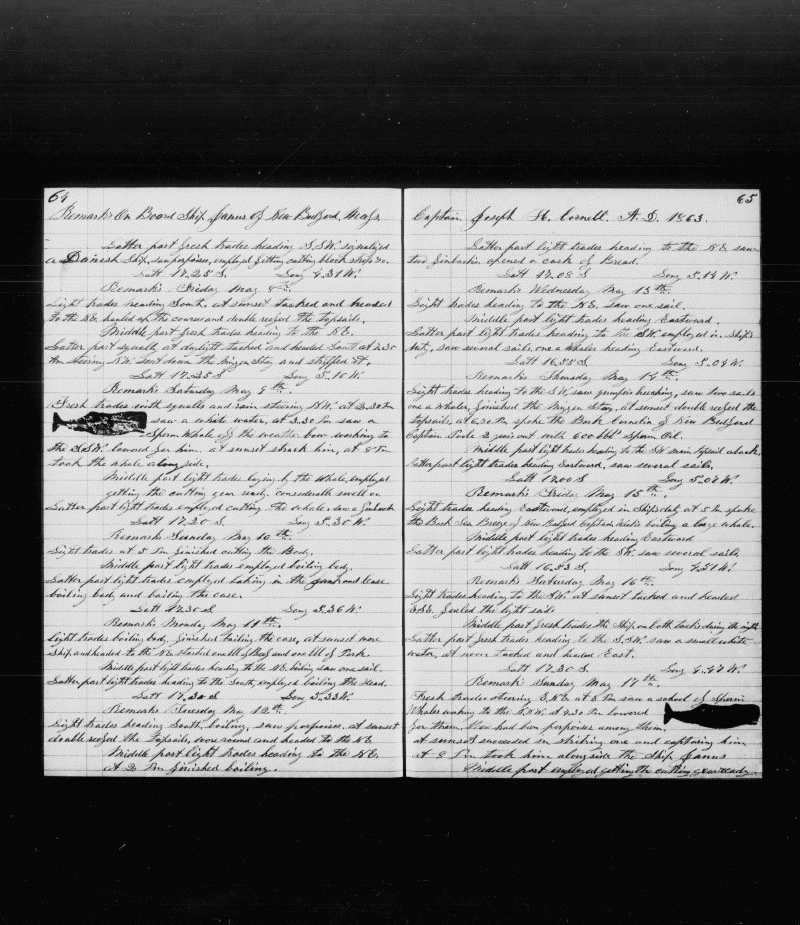 64
Remarks On Board Ship Janus Of New Bedford, Mass
Latter part fresh trades heading S.SW. signalized
a Danish Ship, saw porpoises, employed fitting cutting block straps &c.
Latt 17.25 S Long 4.38 W.
Remarks Friday May 8th.
Light trades heading South, at sunset tacked and headed
to the NE. hauled up the courses and double reefed the Topsails.
Middle part fresh trades heading to the NE.
Latter part squally at daylight tacked and headed South at 7.30
steering NW. Sent down the Mizzen Stay and stripped it.
Latt 17.25 S Long 5.10 W.
Remarks Saturday May 9th.
Fresh trades with squalls and rain steering NW. at 2.30 Pm
saw a white water, at 3.30 Pm saw a
Sperm Whale off the weather bow working to
the S.SW. lowered for him. at sunset struck him, at 8 Pm
took the whale along side.
Middle part light trades laying by the whale, employed
getting the cutting gear ready, considerable swell on
Latter part light trades employed cutting the whale. saw a finback
Latt 17.30 S Long 5.30 W.
Remarks Sunday May 10th.
Light trades at 5 Pm finished cutting the Body.
Middle part light trades employed boiling body.
Latter part light trades employed taking in the junk and case
boiling body and bailing the case.
Latt 17.30 S Long 5.36 W.
Remarks Monday May 11th.
Light trades boiling body, finished bailing the case, at sunset wore
Ship and headed to the NE. started one bbl of Beef and one bbl of Pork.
Middle part light trades heading to the NE. boiling saw one sail.
Latter part light trades heading to the South, employed boiling the Head.
Latt 17.30 S Long 5.33 W.
Remarks Tuesday May 12th.
Light trades heading South, boiling, saw porpoises, at sunset
double reefed the Topsails, wore round and headed to the NE.
Middle part light trades heading to the NE.
at 2 Pm finished boiling.
65
Captain Joseph H. Cornell. A.D. 1863.
Latter part light trades heading to the NE saw
two finbacks. opened a cask of Bread.
Latt 17.08 S Long 5.14 W.
Remarks Wednesday May 13th.
Light trades heading to the NE. saw one sail.
Middle part light trades heading Eastward.
Latter part light trades heading to the SW. employed in Ship's
duty, saw several sails, one a whaler heading Eastward.
Latt 16.55 S Long 5.04 W.
Remarks Thursday May 14th.
Light trades heading to the SW. saw jumpers breaching, saw two sails
one a Whaler, finished the Mizzen Stay, at sunset double reefed the
Topsails, at 6.30 Pm spoke the Bark of New Bedford
Captain Poole 2 years out with 600 bbl Sperm Oil.
Middle part light trades heading to the SW. main topsail aback.
Latter part light trades heading Eastward, saw several sails.
Latt 17.00 S Long 5.07 W.
Remarks Friday May 15th.
Light trades heading Eastward, employed in Ships duty, at 5 Pm spoke
the Bark Sea Breeze of New Bedford Captain Weeks boiling a large whale.
Middle part light trades heading Eastward
Latter part light trades heading to the SW. saw several sails.
Latt 16.53 S Long 4.51 W.
Remarks Saturday May 16th.
Light trades heading to the SW. at sunset tacked and headed
E.SE. furled the light sails.
Middle part fresh trades the Ship on both tacks during the night
Latter part fresh trades heading to the S.SW. saw a small white
water, at noon tacked and headed East.
Latt 17.30 S Long 4.47 W.
Remarks Sunday May 17th.
Fresh trades steering E.NE. at 3 Pm saw a school of Sperm
Whales working to the N.NW. at 4.30 Pm lowered
for them. Also had seen porpoises among them.
at sunset succeeded in striking one and capturing him
at 8 Pm took him alongside the Ship Janus
Middle part employed getting the cutting gear ready.